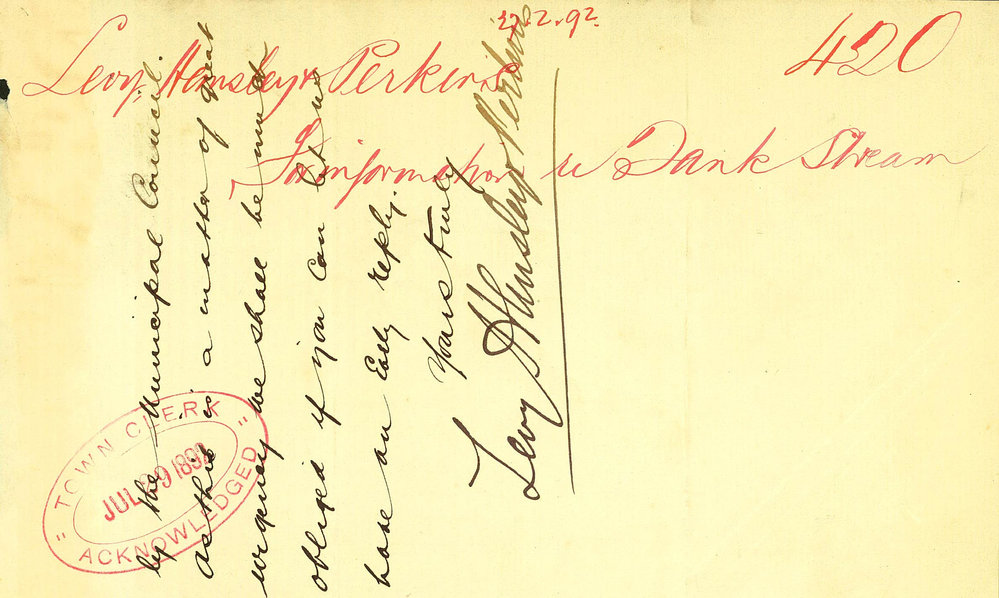 2.92
420
Levy, Hensley & Perkins
For information re Tank Stream
by the Municipal Council.
as this is a matter of great
urgency we shall be much
obliged if you can let us
have an Early reply.
Yours truly
Levy Hensley & Perkins
"TOWN CLERK"
JUL 29 1892
ACKNOWLEDGED